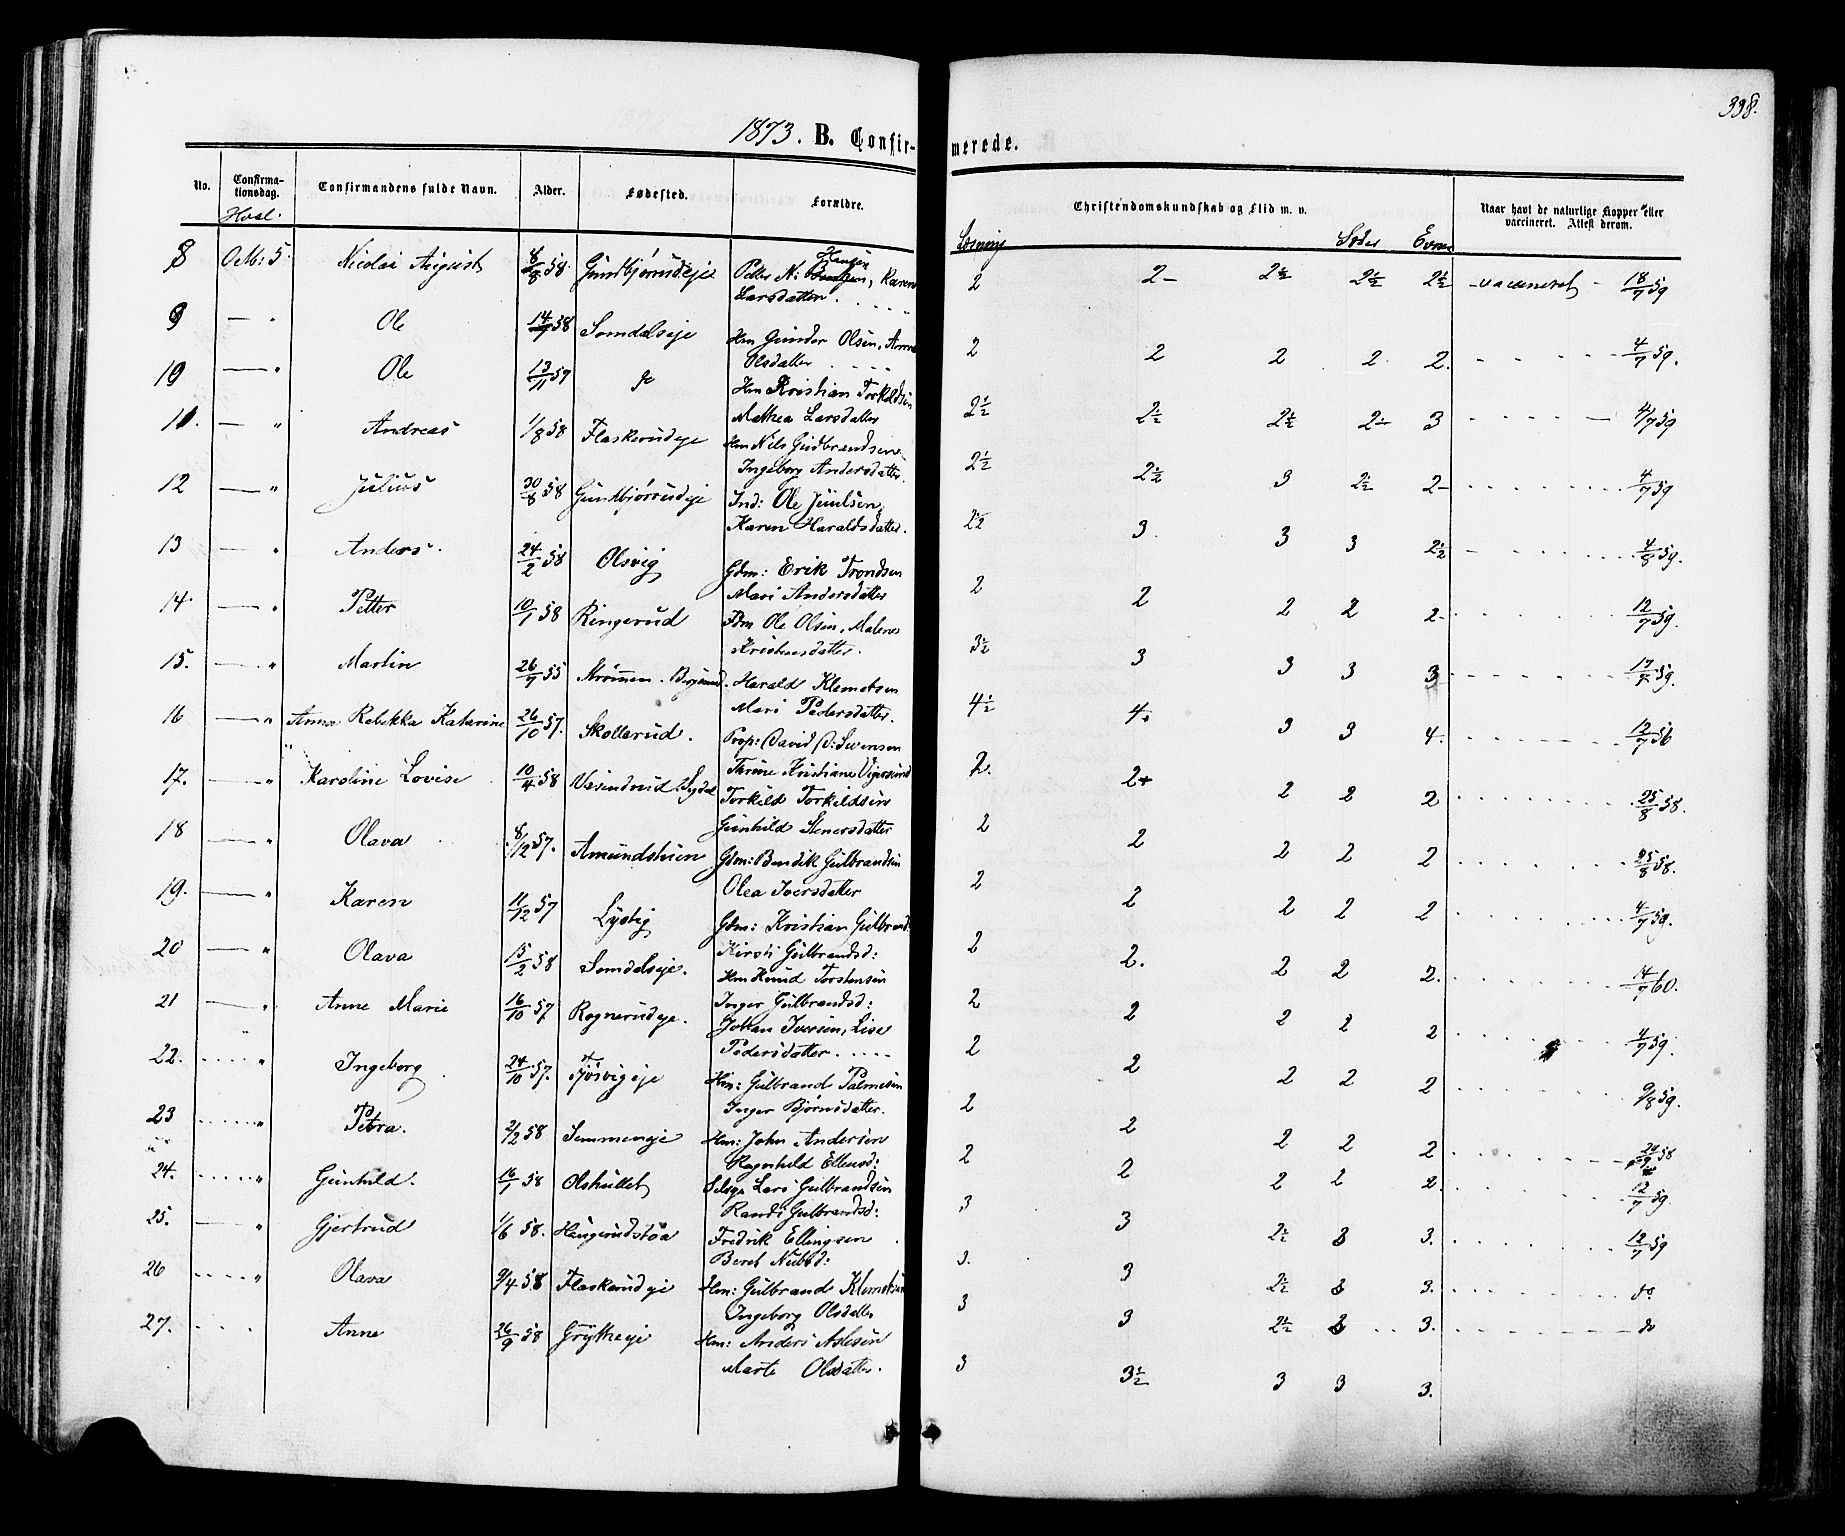 338.
1873. B. Confirmerede.
No. Confirmationsdag. Confirmandens fulde Navn. Alder. Fødested. Forældre. Christendomskundskab og Flid m. v. Naar havt de naturlige Kopper eller vaccineret. Attest derom.
Hval. Læsning Sæder Evner
8 Octb: 5. Nicolai August 8/8 58. Gundbjørrudeje Petter N: Hansen, Karen Larsdatter 2 2- 2½ 2½ 2½ - vaccineret - 18/7 59
9 — " Ole 14/7 58 Somdalseje Hm Gunder Olsen, Anne Olsdatter 2 2 2 2. 2. 4/7 59.
10 — " Ole 13/11 57 do Hm Kristian Torkildsen Mathea Larsdatter 2½ 2½ 2½ 2- 3 4/7 59
11. — " Andreas 1/8 58 Flaskerudeje Hm Nils Gudbrandsen Ingeborg Andersdatter. 2½ 2½ 3 2½ 2- 4/7 59
12 — " Julius 30/8 58 Gundbjørrudeje Ind: Ole Juulsen, Karen Haraldsdatter. 2½ 3. 3 3 2½ 4/8 59.
13 — " Anders. 24/2 58 Olsvig Gdm: Erik Trondsen Mari Andersdatter 2 2 2 2 2- 12/7 59.
14. — " Petter 10/1 58 Ringerud Fdm Ole Olsen, Malene Kristensdatter. 3½ 3 3 3 3 17/7 59.
15. — " Martin 26/7 55 Strømen. Harald Klemetsen Mari Pedersdatter. 4½ 4. 3 3 4. 12/7 56
16 — " Anna Rebekka Katarine 26/10 57. Skollerud. Prop: David Svensen Thrine Kristiane 2. 2+ 2 2 2 25/8 58.
17. — " Karoline Lovise 10/4 58 Væsendrud. Sigdal Torkild Torkildsen Gunhild Stenersdatter 2 2 2 2 2 25/8 58.
18 — " Olava 8/12 57. Amundstuen Gdm: Bendik Gulbrandsen Olea Iversdatter 2 2 2 2 2 4/7 59.
19. — " Karen 11/12 57 Lystig Gdm: Kristian Gulbrands Kirsti Gulbrandsd: 2 2. 2 2 2. 14/7 60.
20 — " Olava 15/2 58 Somdalseje. Hm Knud Torstensen Inger Gulbrandsd: 2 2 2 2 2 4/7 59.
21 — " Anne Marie 16/10 57 Rognerudeje. Johan Iversen, Lise Pedersdatter 2 2 2 2 2 9/8 59.
22. " Ingeborg 24/10 57. Tjøsvigeje Hm: Gulbrand Palmesen Inger Bjørnsdatter. 2 2 2 2 2 20/9 58
23 " Petra. 2/2 58 Semmeneje Hm: John Andersen Ragnhild Ellensd: 2 2 2 2 2. 12/7 59.
24. " Gunhild. 16/1 58 Olshullet Selvge Lars Gulbrandsen Randi Gulbrandsd: 3 3 2½ 3 3. 12/7 59
25. — " Gjertrud 1/6 58. Haugerudstøa Fredrik Ellingsen Beret Nubsd: 3. 3 2½ 3 3. do
26 " Olava 9/4 58 Flaskerudeje Hm: Gulbrand Klemetsen Ingeborg Olsdatter 3 3 2½ 3 3. do
27. Anne 26/9 58 Grytheje Hm: Anders Aslesen Marte Olsdatter. 3 3½ 3 3 3.